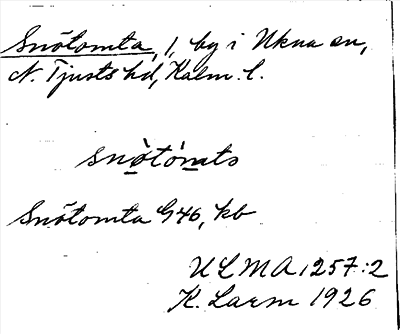 Snötomta, 1, by i Ukna sn,
N. Tjusts hd, Kalm. l.
snö̀tómta
Snötomta G46, kb
ULMA 1257:2
K. Larm 1926